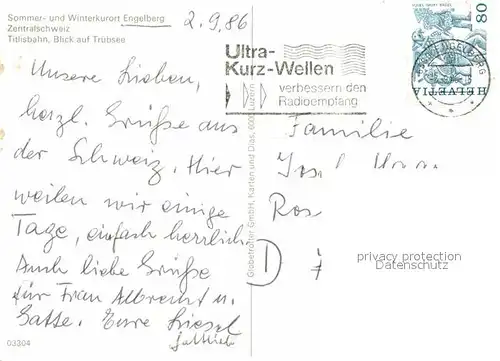 Sommer- und Winterkurort Engelberg
Zentralschweiz
Titlisbahn, Blick auf Trübsee
2.9.86
Ultra-
Kurz-Wellen
verbessern den
Radioempfang
HELVETIA
80
ENGELBERG
Unsere Lieben,
herzl. Grüße aus
der Schweiz. Hier
weilen wir einige
Tage, einfach herrlich
Auch liebe Grüße
für Frau Albrecht u.
Gatte. Eure Liesel
Familie
Ros
D
privacy protection
Datenschutz
Globetrotter GmbH, Karten und Dias, Luzern
03304